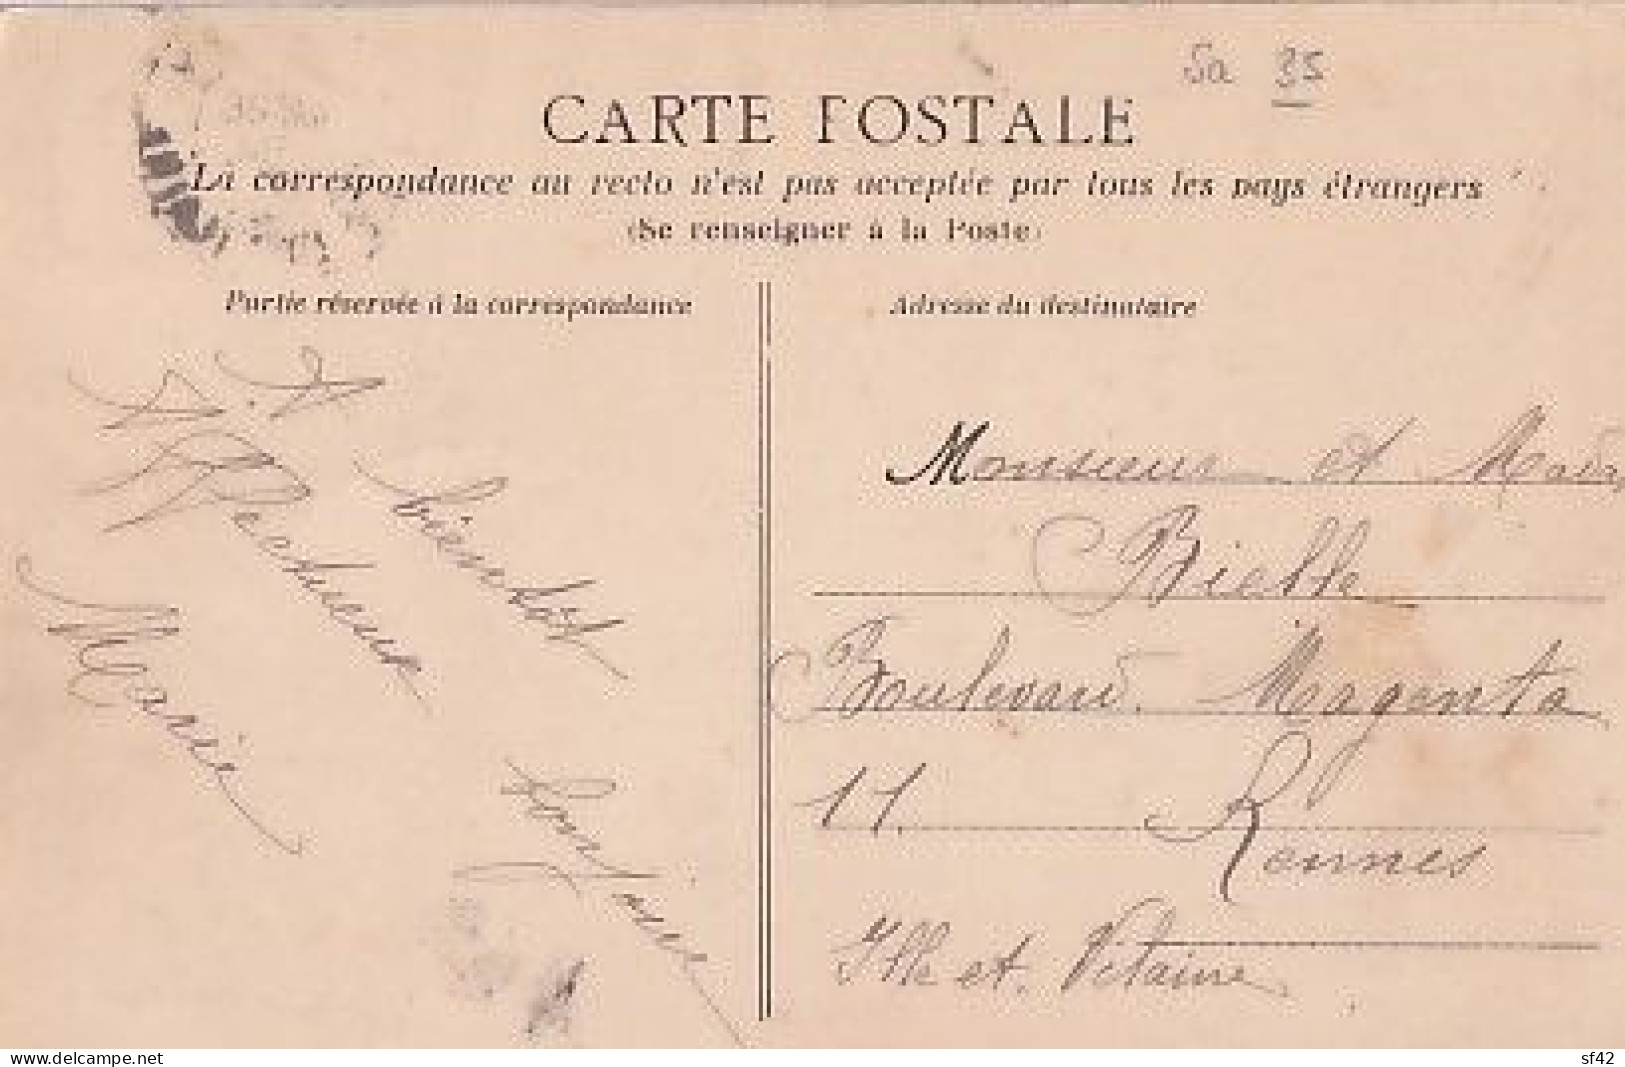 5a 35
CARTE POSTALE
La correspondance au recto n'est pas acceptée par tous les pays étrangers
(Se renseigner à la Poste)
Partie réservée à la correspondance
bientôt
Affectueux
Marie
Adresse du destinataire
Monsieur et Mada
Bielle
Boulevard Magenta
11. Rennes
Ille et Vilaine
www.delcampe.net
sf42